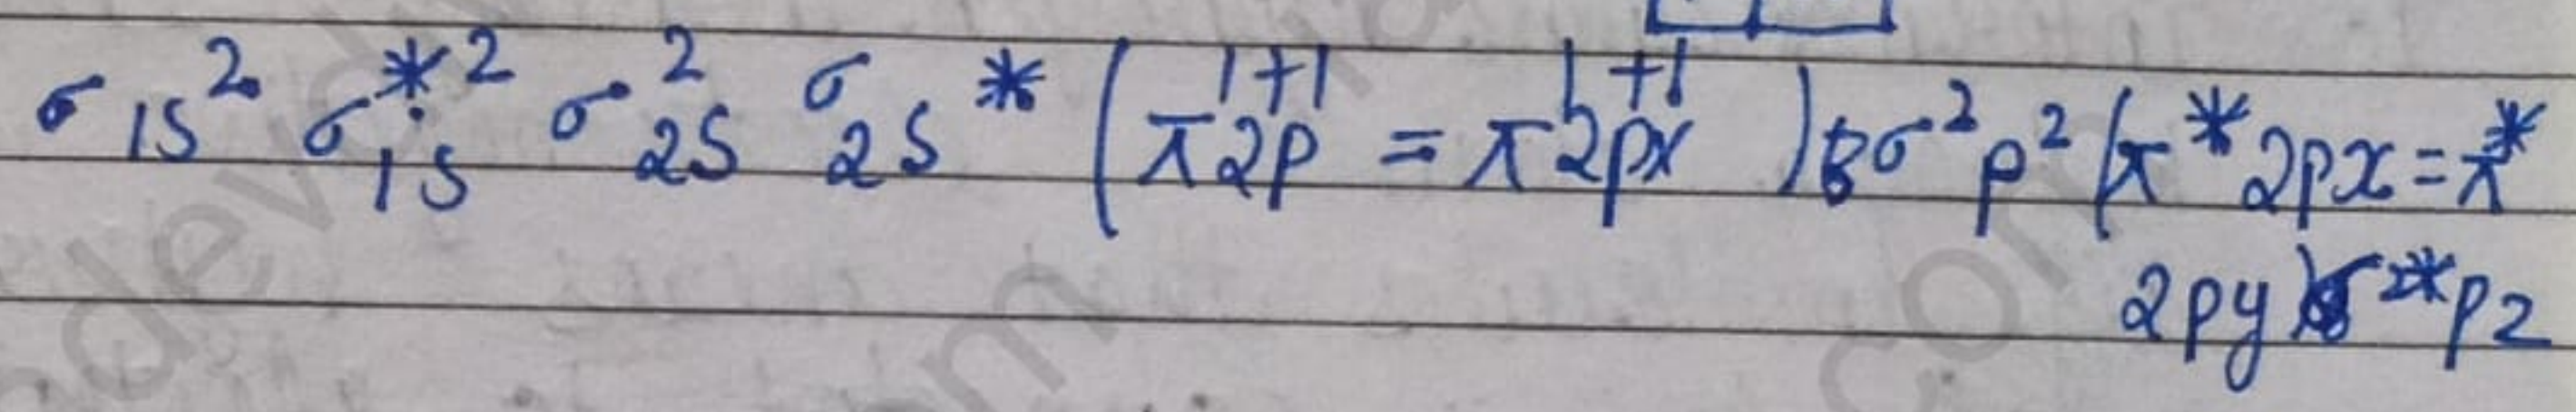 σ 1s² σ*² 1s σ² 2s σ 2s * ( π 2p¹⁺¹ = π 2px¹⁺¹ ) σ² p² ( π* 2px = π*
2py ) σ ²* p2